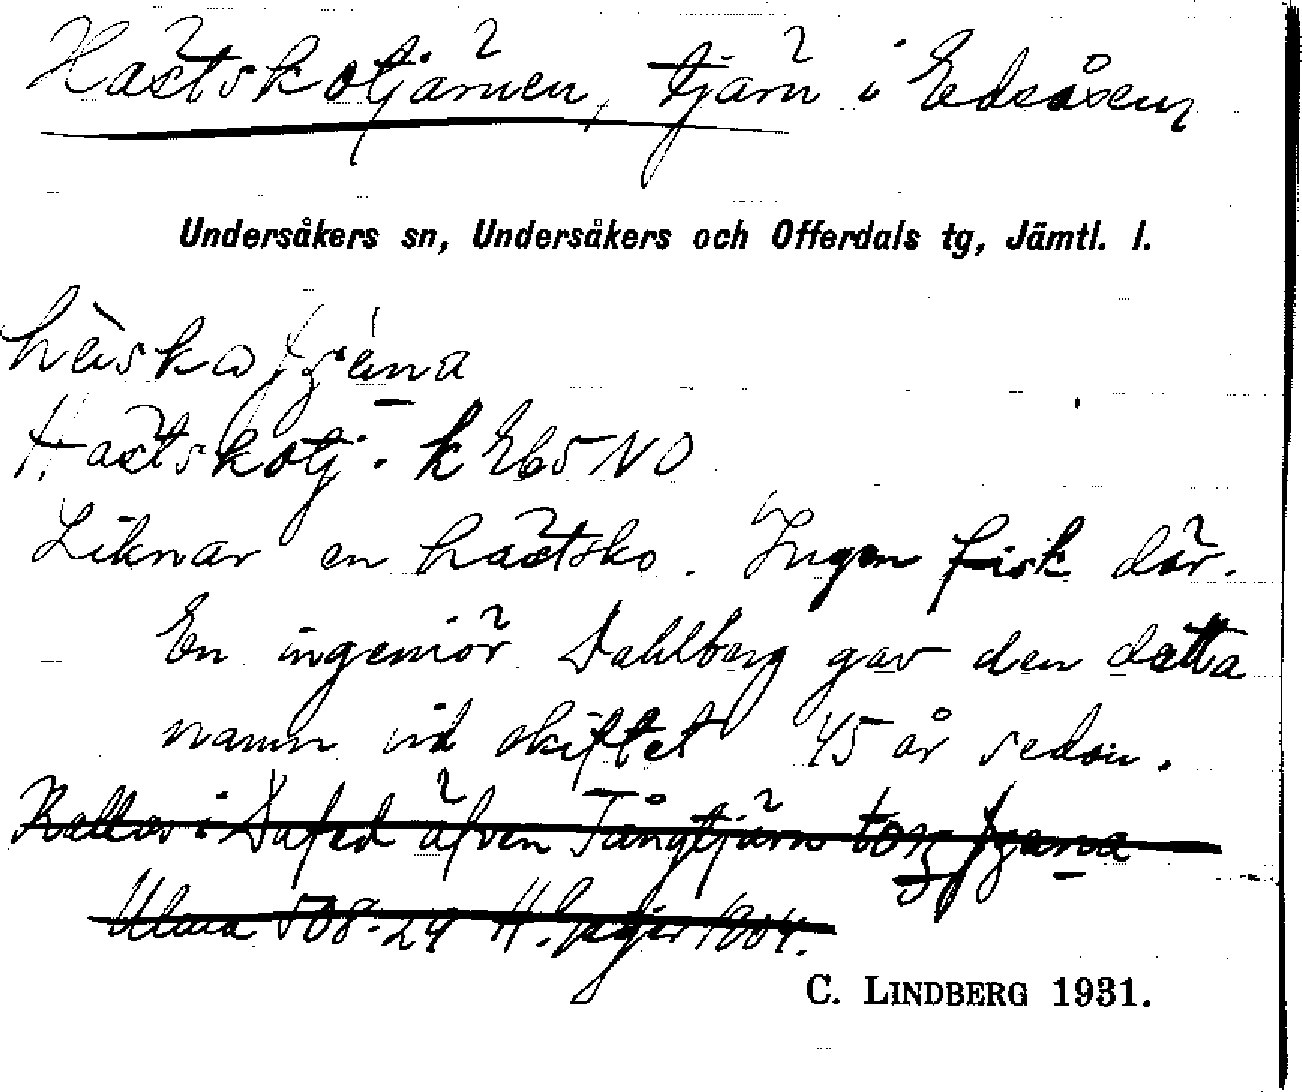 Hästskotjärnen, tjärn i Edsåsen
Undersåkers sn, Undersåkers och Offerdals tg, Jämtl. l.
Hästskotj. k Z65 NO
Liknar en hästsko. Ingen fisk där.
En ingeniör Dahlberg gav den detta
namn vid skiftet 45 år sedan.
Kallas i Dafed äfven Tångtjärn
Ulma 508:24 H. Geijer 1904.
C. LINDBERG 1931.